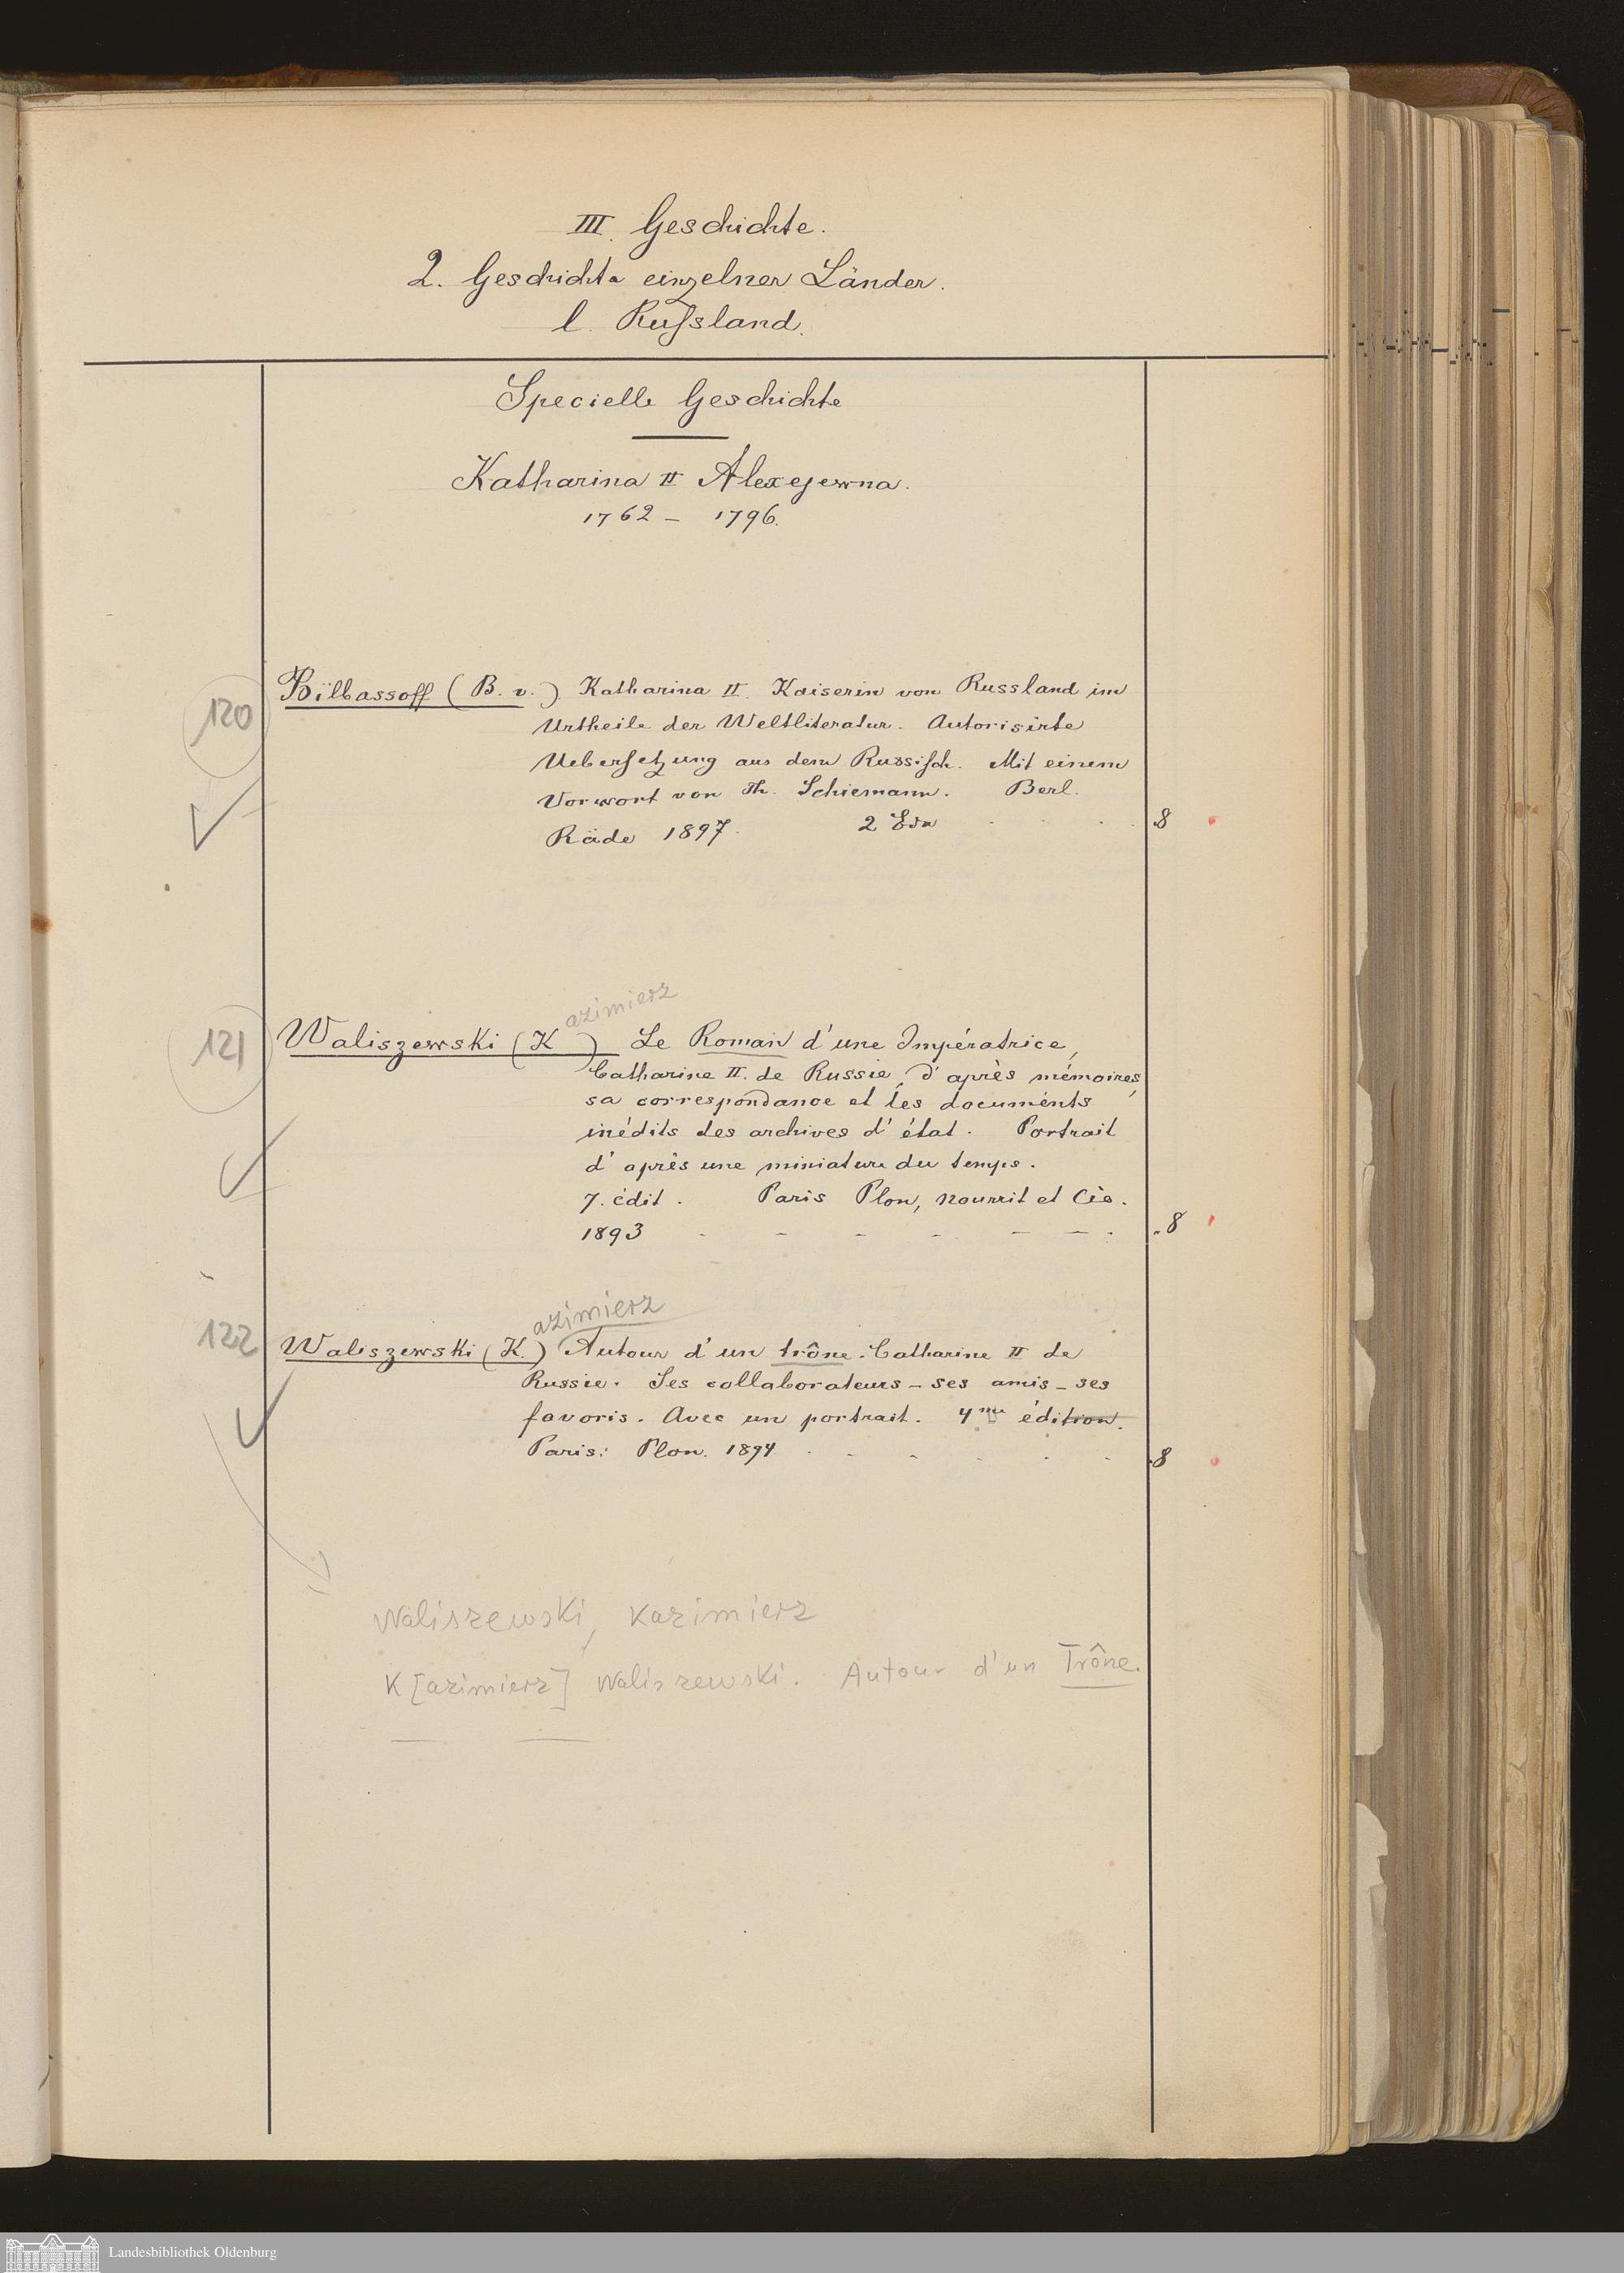 III. Geschichte.
2. Geschichte einzelner Länder.
l. Rußland.
Specielle Geschichte
Katharina II Alexejewna.
1762 - 1796.
120
Bilbassoff (B. v.) Katharina II. Kaiserin von Russland im
Urtheile der Weltliteratur. Autorisirte
Uebersetzung aus dem Russisch. Mit einem
Vorwort von Th. Schiemann. Berl.
Räde 1897. 2 8
azimierz
121
Waliszewski (K ) Le Roman d'une Impératrice,
Catharine II. de Russie, d'après mémoires,
sa correspondance et les documents
inédits des archives d'état. Portrait
d'après une miniature du temps.
7. édit. Paris Plon, Nourrit et Cie.
1893 8
azimierz
122
Waliszewski (K.) Autour d'un trône. Catharine II de
Russie. Ses collaborateurs - ses amis - ses
favoris. Avec un portrait. 4me édition.
Paris: Plon. 1894 8
Waliszewski, Kazimierz
K[azimierz] Waliszewski. Autour d'un Trône.
Landesbibliothek Oldenburg